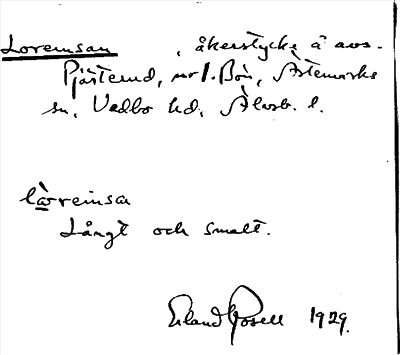 Loremsan, åkerstycke å avs.
Pjästerud, nr 1. Bön, Ärtemarks
sn, Vedbo hd, Älvsb. l.
låvreinsa
Långt och smalt.
Erland Rosell 1929.